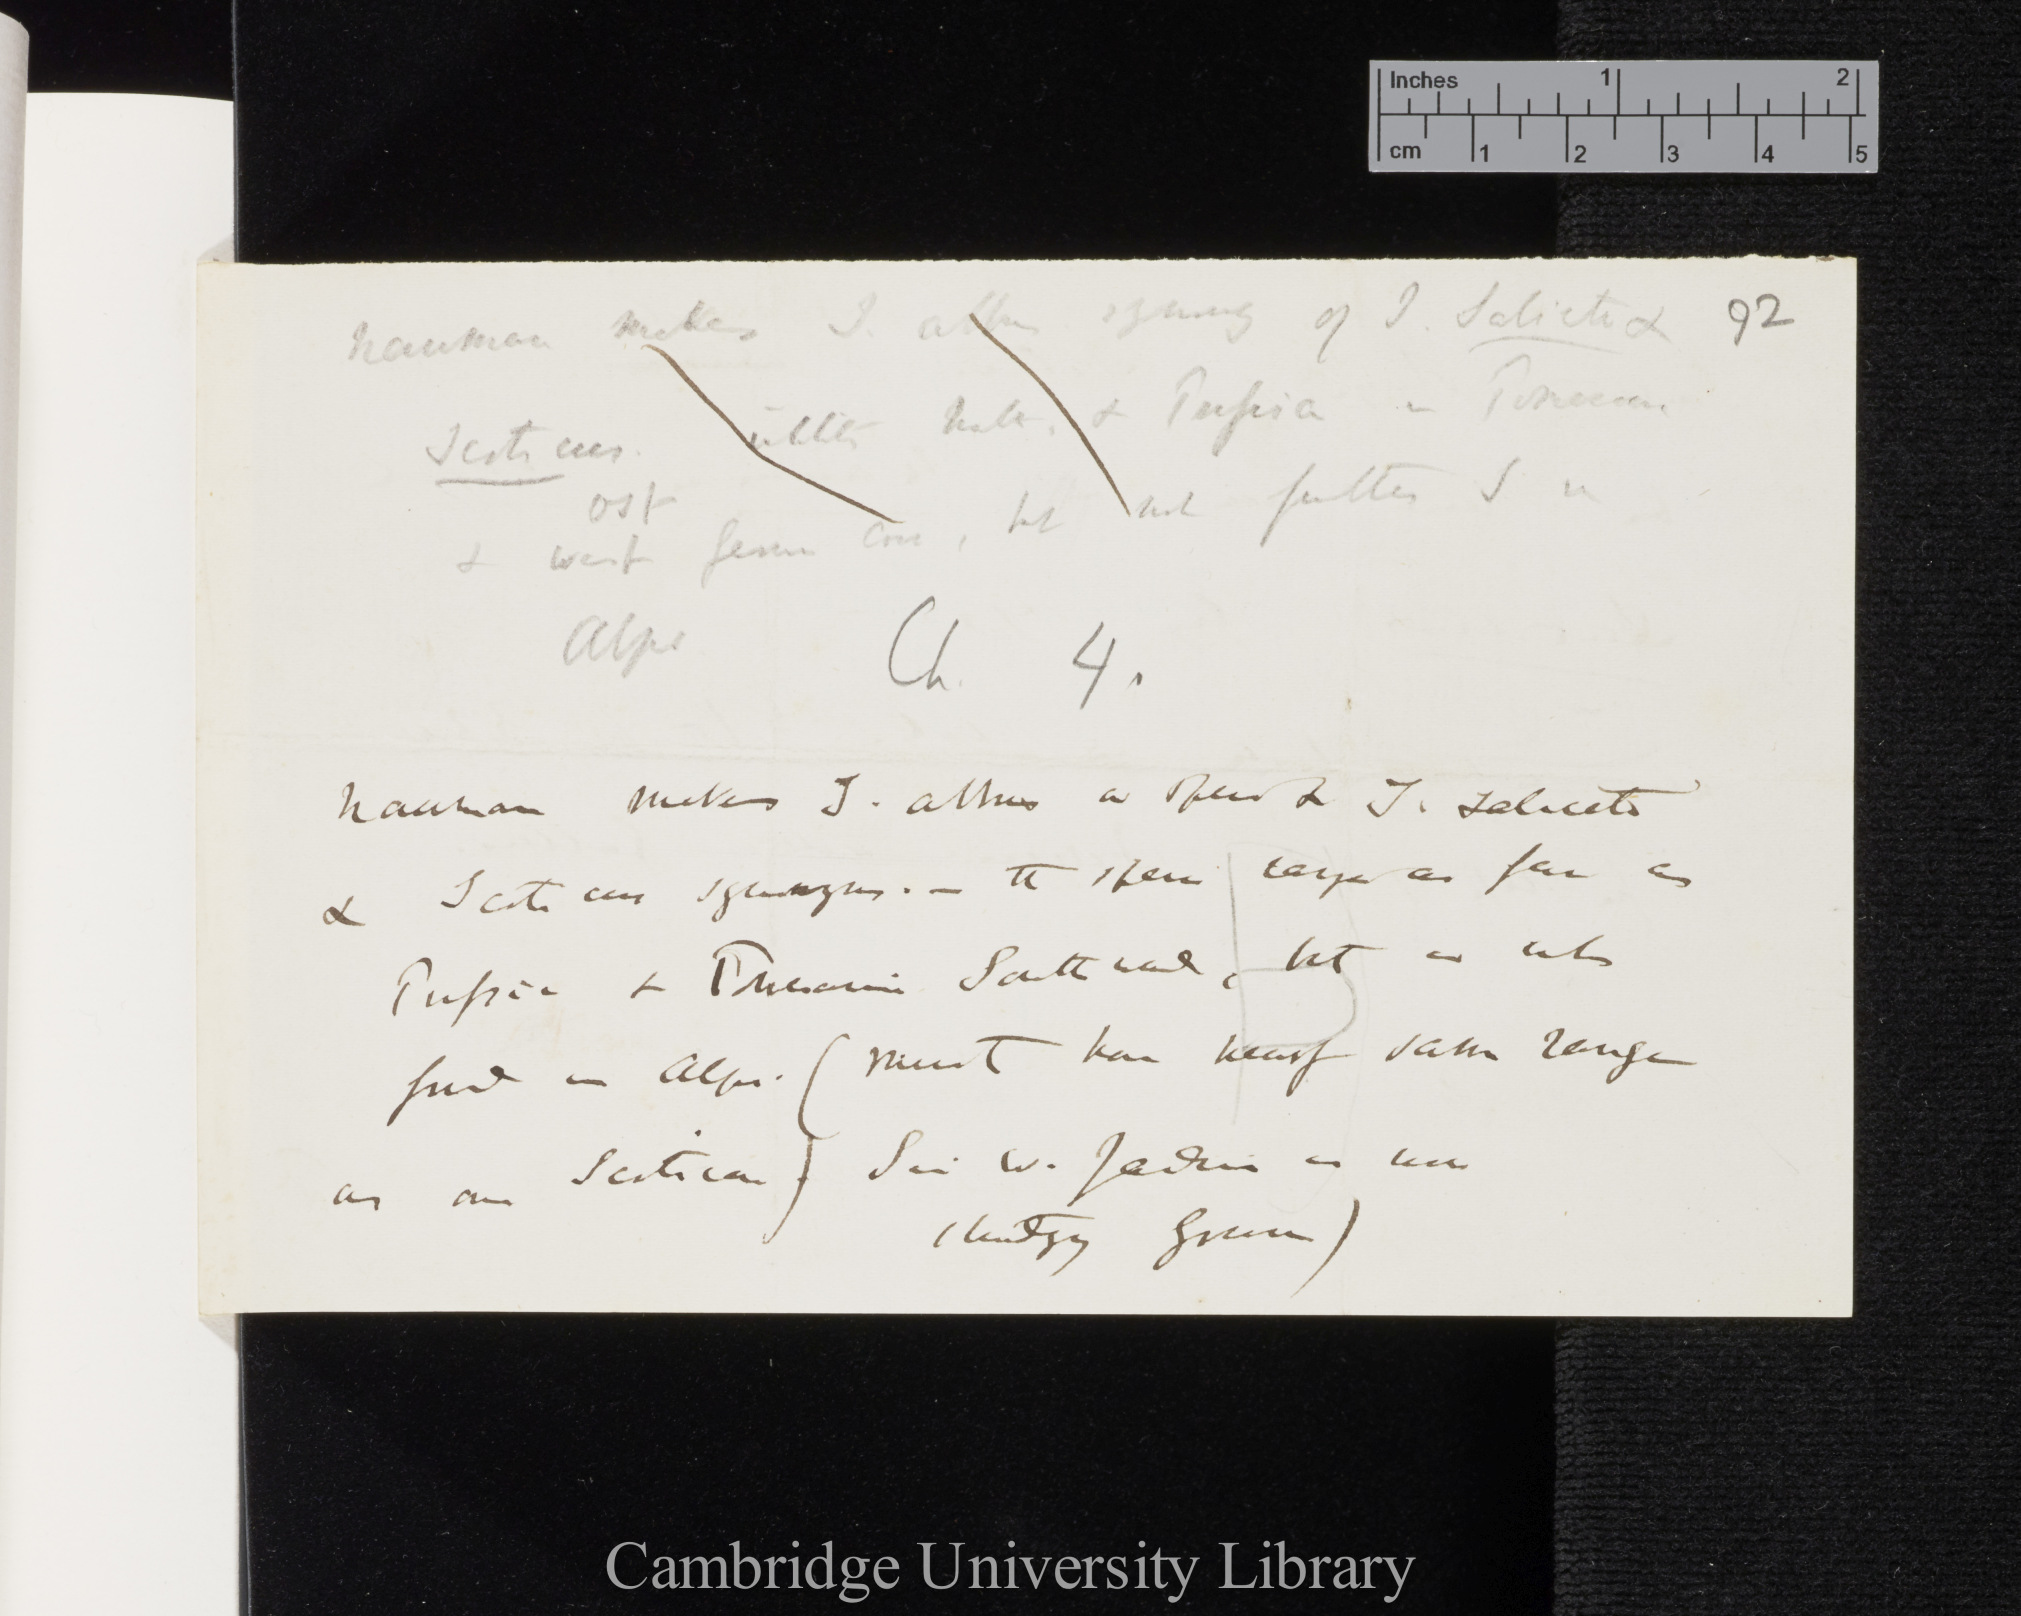 Inches 1 2
cm 1 2 3 4 5
92
Nauman makes T. albus synony of T. Saliceti &
Scoticus. Nder, & Prussia in Pomeran
ost
& west , but not further S in
Alps
Ch 4.
Nauman makes T. albus a species & T. saliceti
& Scoticus synonyms. — the species range as far as
Prussia & Pomerania Southward, but is
found in Alps. (must have nearly same range
as our Scoticus) Sir W. Jardine is
Grouse)
Cambridge University Library